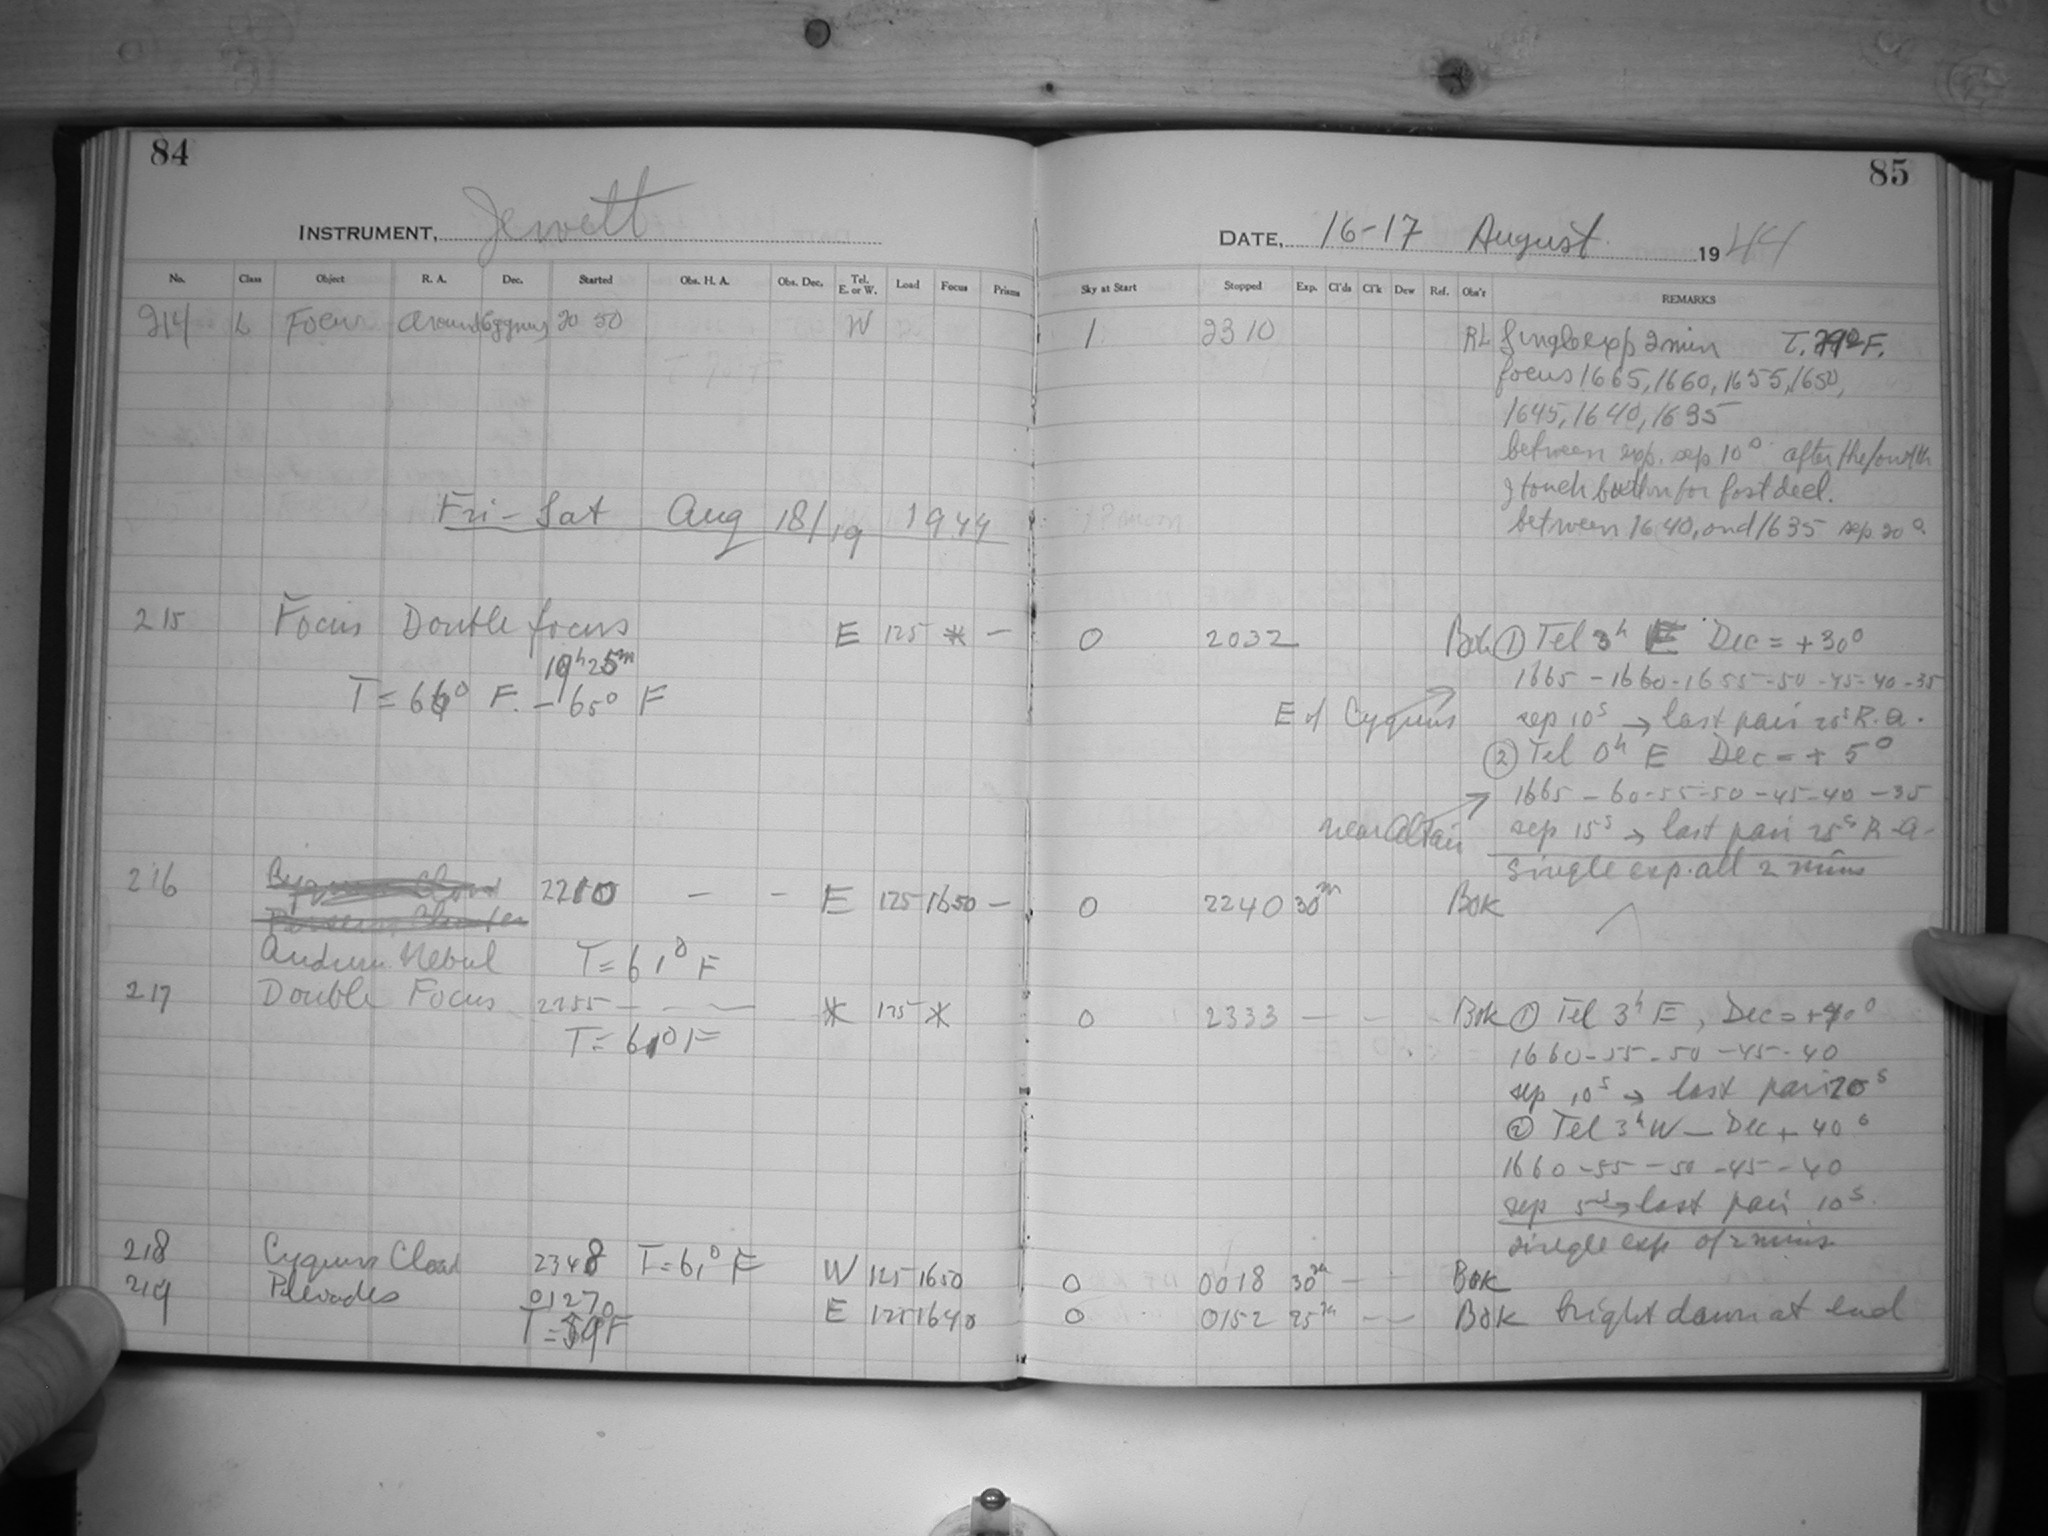 84
INSTRUMENT, Jewett
No. Class Object R. A. Dec. Started Obs. H. A. Obs. Dec. Tel. E. or W. Load Focus Prisms
214 L Focus around Cygnus 20 50 W
Fri - Sat Aug 18/19 1944
215 Focus Double focus E 125 * —
19h 25m
T = 66° F. - 65° F
216 2210 — - E 125 1650 —
Androm Nebul T = 61° F
217 Double Focus 2255 - - — * 125 *
T = 61° F
218 Cygnus Cloud 2348 T = 61° F W 125 1650
219 Pleiades 0127 E 125 1640
T = 59° F
85
DATE, 16-17 August 1944
Sky at Start Stopped Exp. Cl'ds Cl'k Dew Ref. Obs'r REMARKS
1 2310 RL Single exp 2 min T. F.
focus 1665, 1660, 1655, 1650,
1645, 1640, 1635
between exp. sep 10° after the fourth
I touch button for fast decl.
between 1640, and 1635 sep 20°
0 2032 Bok ① Tel 3h E Dec = +30°
1665 - 1660 - 1655 - 50 - 45 - 40 - 35
E of Cygnus sep 10s → last pair 25s R.A.
② Tel 0h E Dec = + 5°
1665 - 60 - 55 - 50 - 45 - 40 - 35
near Altair sep 15s → last pair 25s R.A.
single exp. all 2 mins
0 2240 30m Bok
0 2333 — - - Bok ① Tel 3h E, Dec = +40°
1660 - 55 - 50 - 45 - 40
sep 10s → last pair 20s
② Tel 3h W — Dec + 40°
1660 - 55 - 50 - 45 - 40
sep 5s → last pair 10s.
single exp of 2 mins
0 0018 30m - - Bok
0 0152 25m - - Bok bright dawn at end